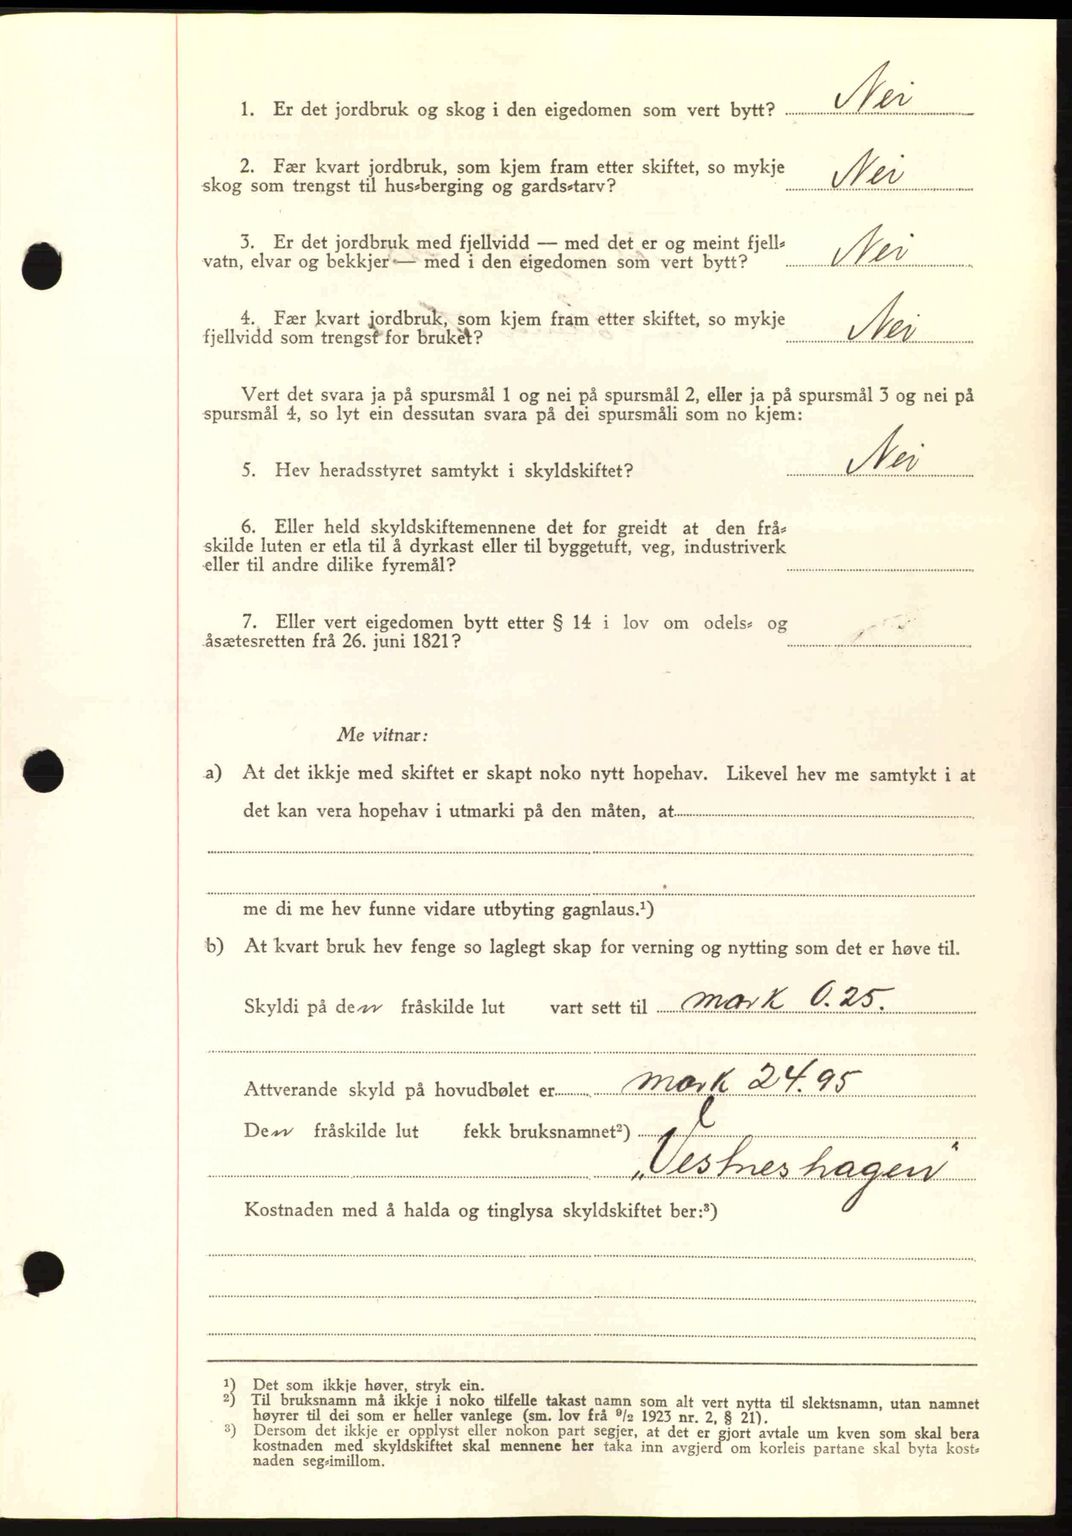 1. Er det jordbruk og skog i den eigedomen som vert bytt? Nei
2. Fær kvart jordbruk, som kjem fram etter skiftet, so mykje
skog som trengst til hus-berging og gards-tarv? Nei
3. Er det jordbruk med fjellvidd — med det er og meint fjell-
vatn, elvar og bekkjer — med i den eigedomen som vert bytt? Nei
4. Fær kvart jordbruk, som kjem fram etter skiftet, so mykje
fjellvidd som trengst for bruket? Nei
Vert det svara ja på spursmål 1 og nei på spursmål 2, eller ja på spursmål 3 og nei på
spursmål 4, so lyt ein dessutan svara på dei spursmåli som no kjem:
5. Hev heradsstyret samtykt i skyldskiftet? Nei
6. Eller held skyldskiftemennene det for greidt at den frå-
skilde luten er etla til å dyrkast eller til byggetuft, veg, industriverk
eller til andre dilike fyremål?
7. Eller vert eigedomen bytt etter § 14 i lov om odels- og
åsætesretten frå 26. juni 1821?
Me vitnar:
a) At det ikkje med skiftet er skapt noko nytt hopehav. Likevel hev me samtykt i at
det kan vera hopehav i utmarki på den måten, at
me di me hev funne vidare utbyting gagnlaus.¹)
b) At kvart bruk hev fenge so laglegt skap for verning og nytting som det er høve til.
Skyldi på den fråskilde lut vart sett til mark 0.25.
Attverande skyld på hovudbølet er mark 24.95
Den fråskilde lut fekk bruksnamnet²)
„Vestneshagen"
Kostnaden med å halda og tinglysa skyldskiftet ber:³)
¹) Det som ikkje høver, stryk ein.
²) Til bruksnamn må ikkje i noko tilfelle takast namn som alt vert nytta til slektsnamn, utan namnet
høyrer til dei som er heller vanlege (sm. lov frå ⁹/₂ 1923 nr. 2, § 21).
³) Dersom det ikkje er opplyst eller nokon part segjer, at det er gjort avtale um kven som skal bera
kostnaden med skyldskiftet skal mennene her taka inn avgjerd om korleis partane skal byta kost-
naden seg-imillom.